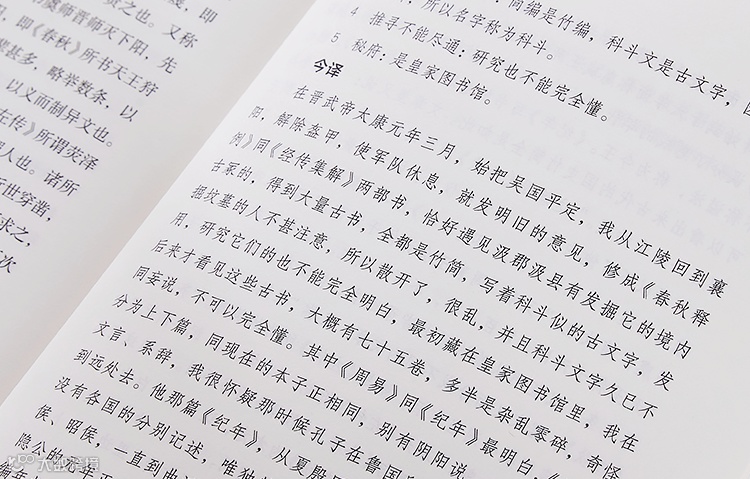 虞师晋师灭下阳，先
即《春秋》所书天王狩
甚多，略举数条，以
以义而制异文也。
左传》所谓荧泽
人也。诸所
世穿凿，
求之，
次
，所以名字称为科斗。
简编是竹编，科斗文是古文字，
4 推寻不能尽通：研究也不能完全懂。
5 秘府：是皇家图书馆。
今译
在晋武帝太康元年三月，始把吴国平定，我从江陵回到襄
阳，解除盔甲，使军队休息，就发明旧的意见，修成《春秋释
例》同《经传集解》两部书，恰好遇见汲郡汲县有发掘它的境内
古冢的，得到大量古书，全都是竹简，写着科斗似的古文字，发
掘坟墓的人不甚注意，所以散开了，很乱，并且科斗文字久已不
用，研究它们的也不能完全明白，最初藏在皇家图书馆里，我在
后来才看见这些古书，大概有七十五卷，多半是杂乱零碎，奇怪
同妄说，不可以完全懂。其中《周易》同《纪年》最明白，《
分为上下篇，同现在的本子正相同，别有阴阳说
文言、系辞，我很怀疑那时候孔子在鲁国
到远处去。他那篇《纪年》，从夏殷
没有各国的分别记述，唯独
侯、昭侯，一直到曲
隐公的元年正